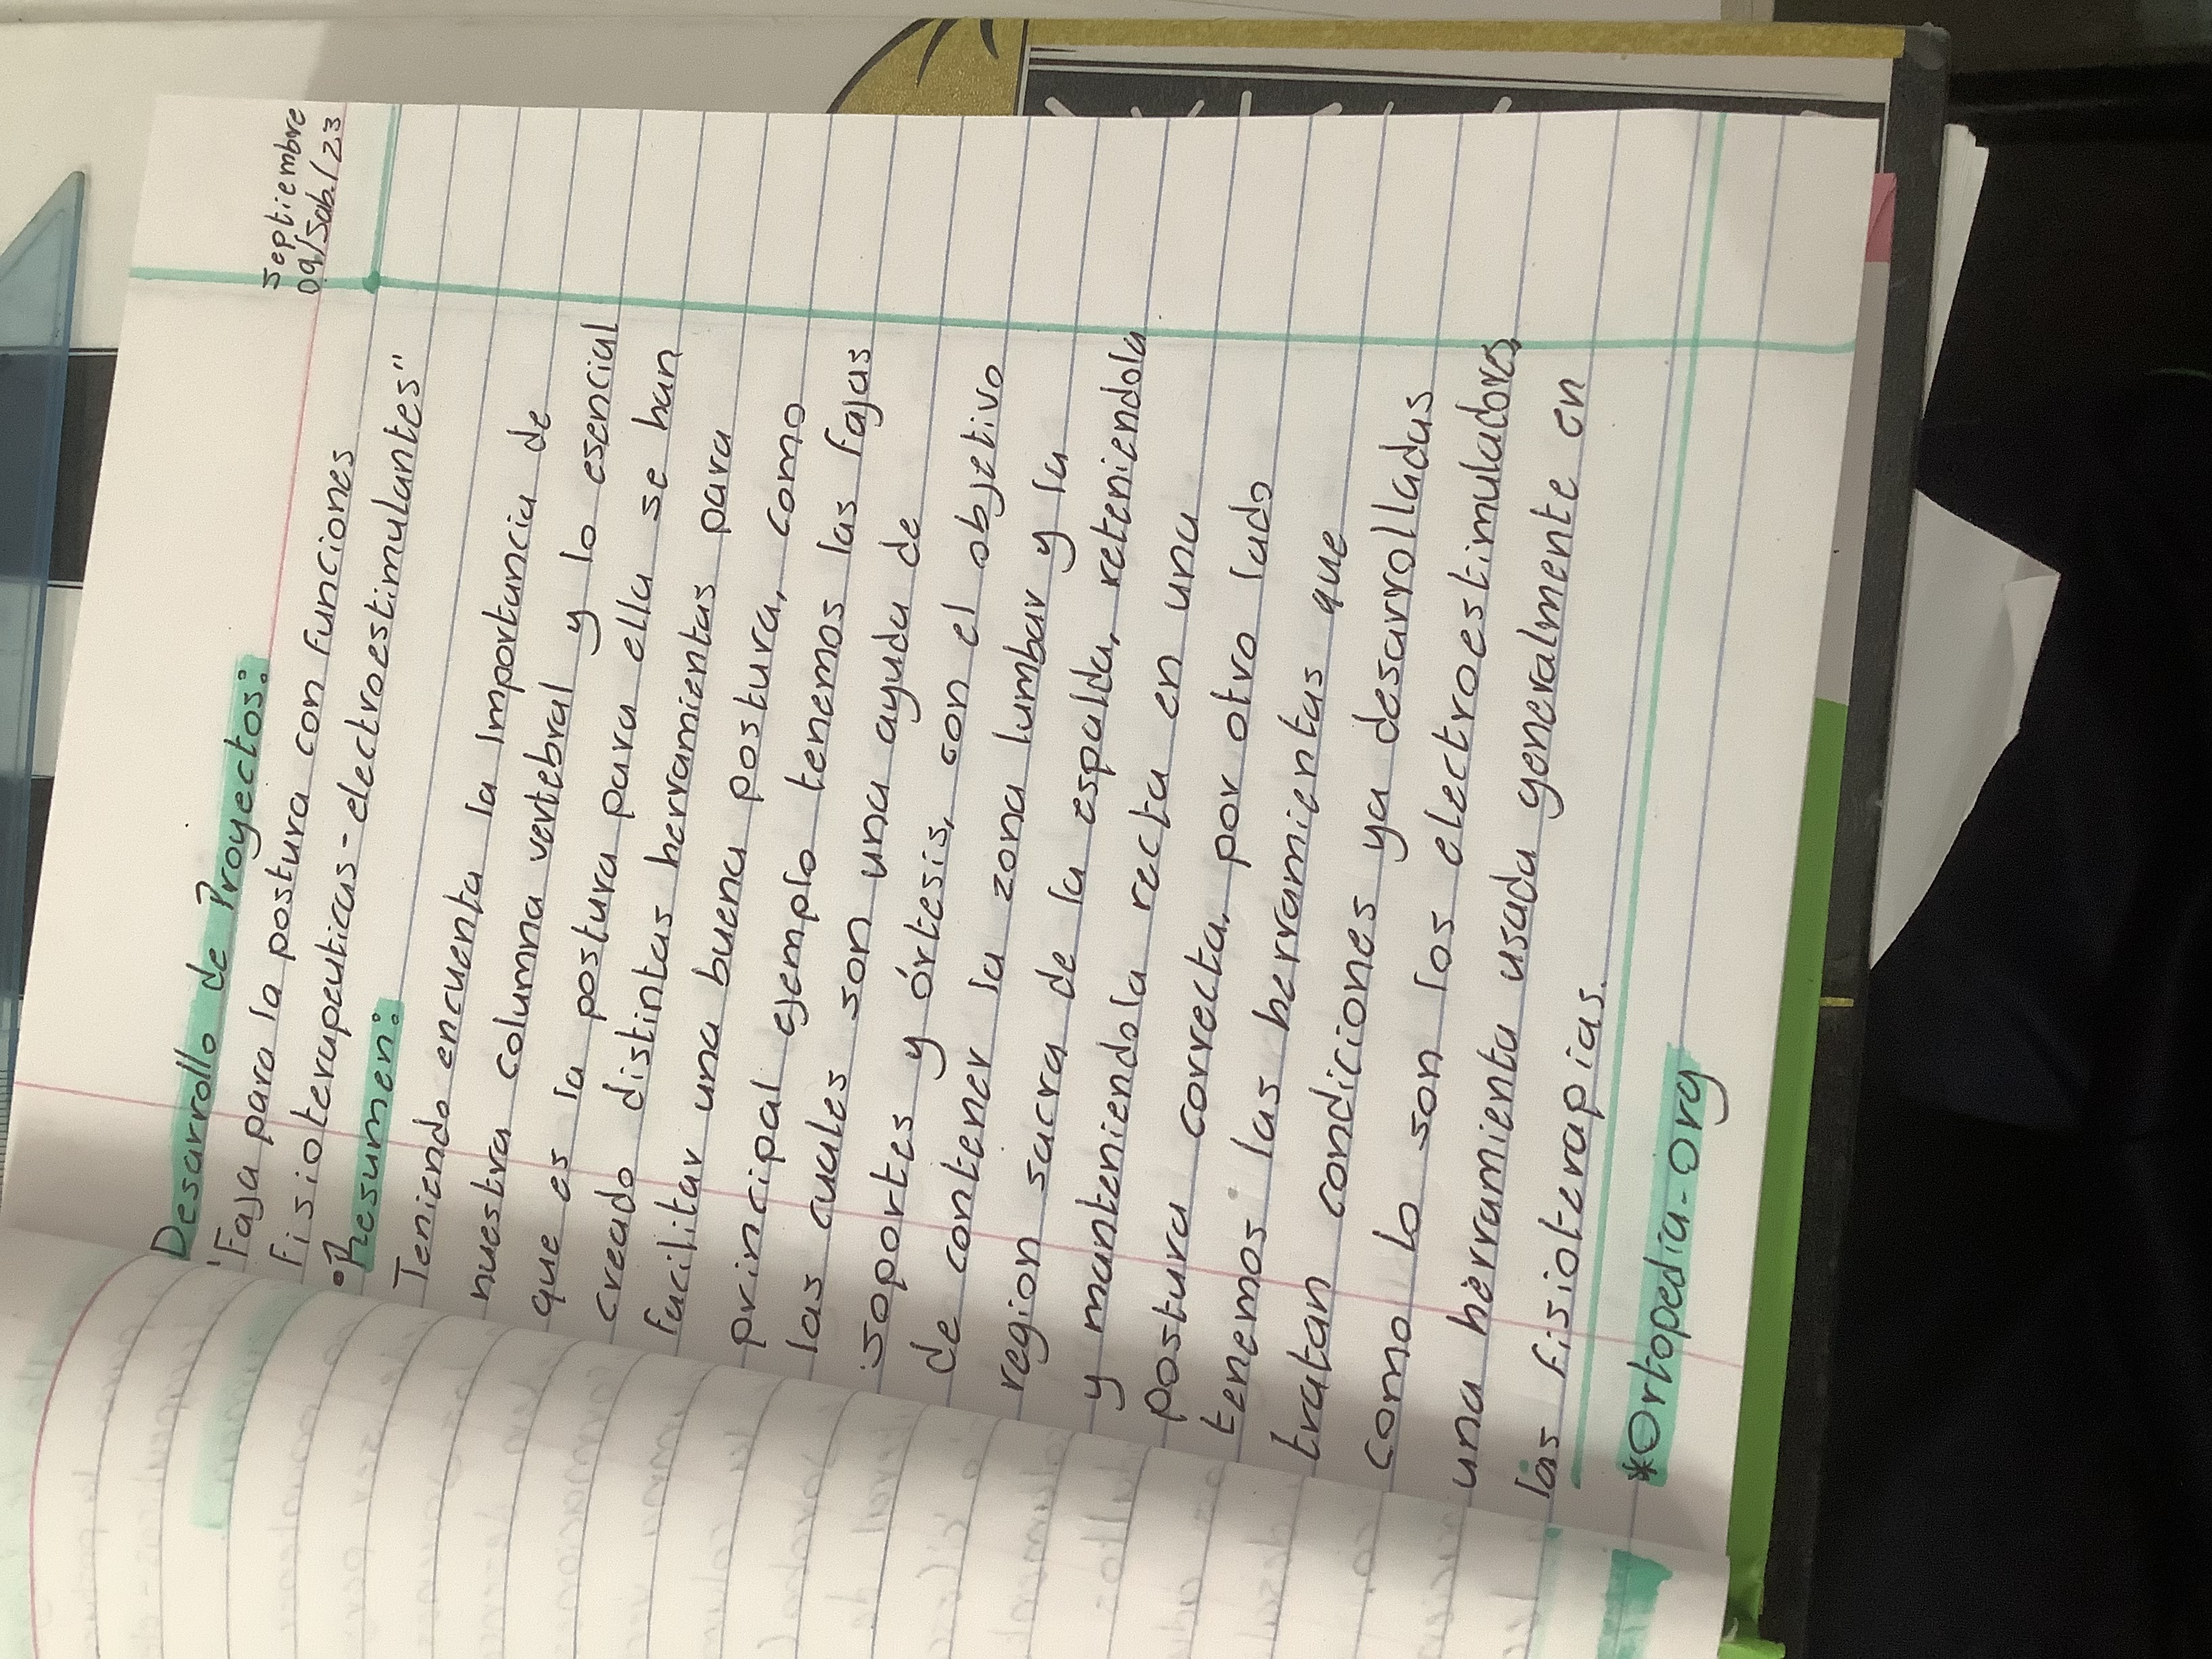 septiembre
09/Sab/23
Desarrollo de Proyectos:
"Faja para la postura con funciones
fisioterapeuticas-electroestimulantes"
•Resumen:
Teniendo encuenta la importancia de
nuestra columna vertebral y lo esencial
que es la postura para ella se han
creado distintas herramientas para
facilitar una buena postura, como
principal ejemplo tenemos las fajas
las cuales son una ayuda de
soportes y órtesis, con el objetivo
de contener la zona lumbar y la
region sacra de la espalda, reteniendola
y manteniendola recta en una
postura correcta, por otro lado
tenemos las herramientas que
tratan condiciones ya desarrolladas
como lo son los electroestimuladores,
una herramienta usada generalmente en
las fisioterapias.
*Ortopedia-org